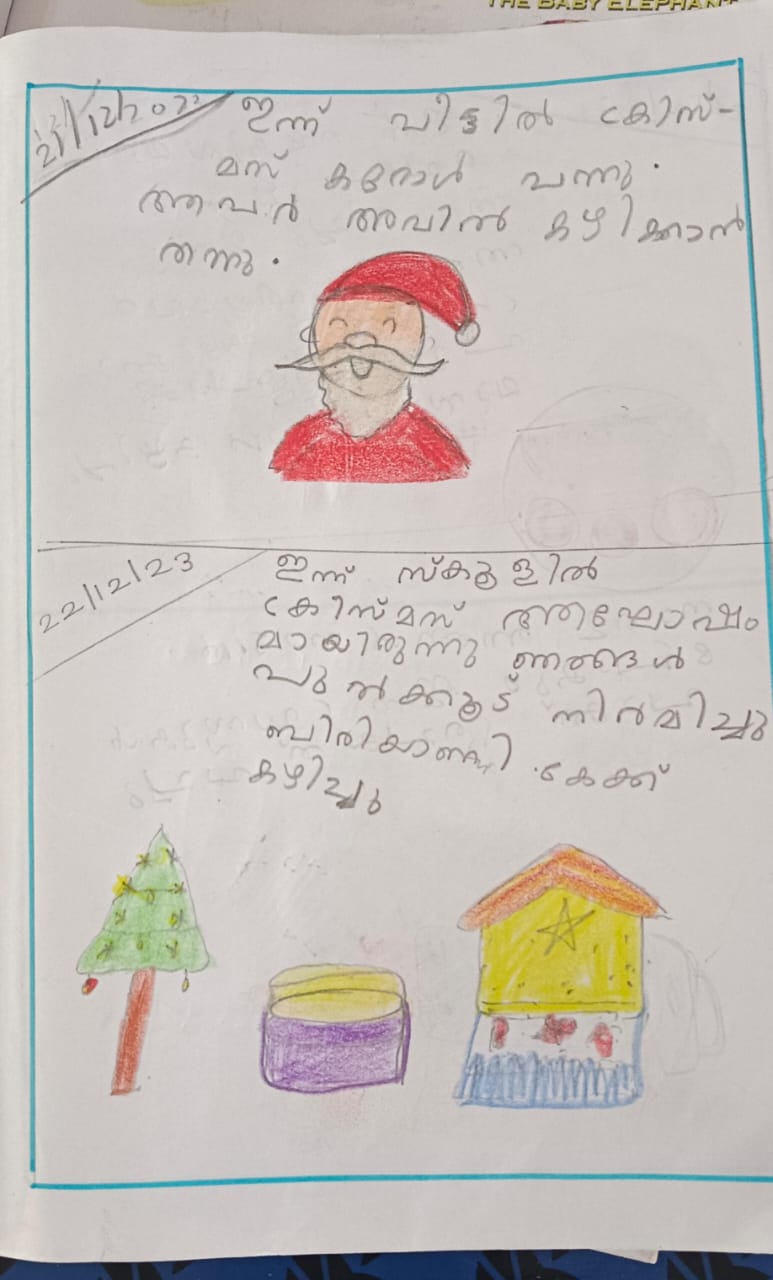 THE BABY ELEPHANT
21/12/2023 ഇന്ന് വീട്ടിൽ ക്രിസ്-
മസ് കരോൾ വന്നു.
അവർ അവിൽ കഴിക്കാൻ
തന്നു.
22/12/23 ഇന്ന് സ്കൂളിൽ
ക്രിസ്മസ് ആഘോഷം
മായിരുന്നു ഞങ്ങൾ
പുൽക്കൂട് നിർമിച്ചു
ബിരിയാണി കേക്ക്
കഴിച്ചു